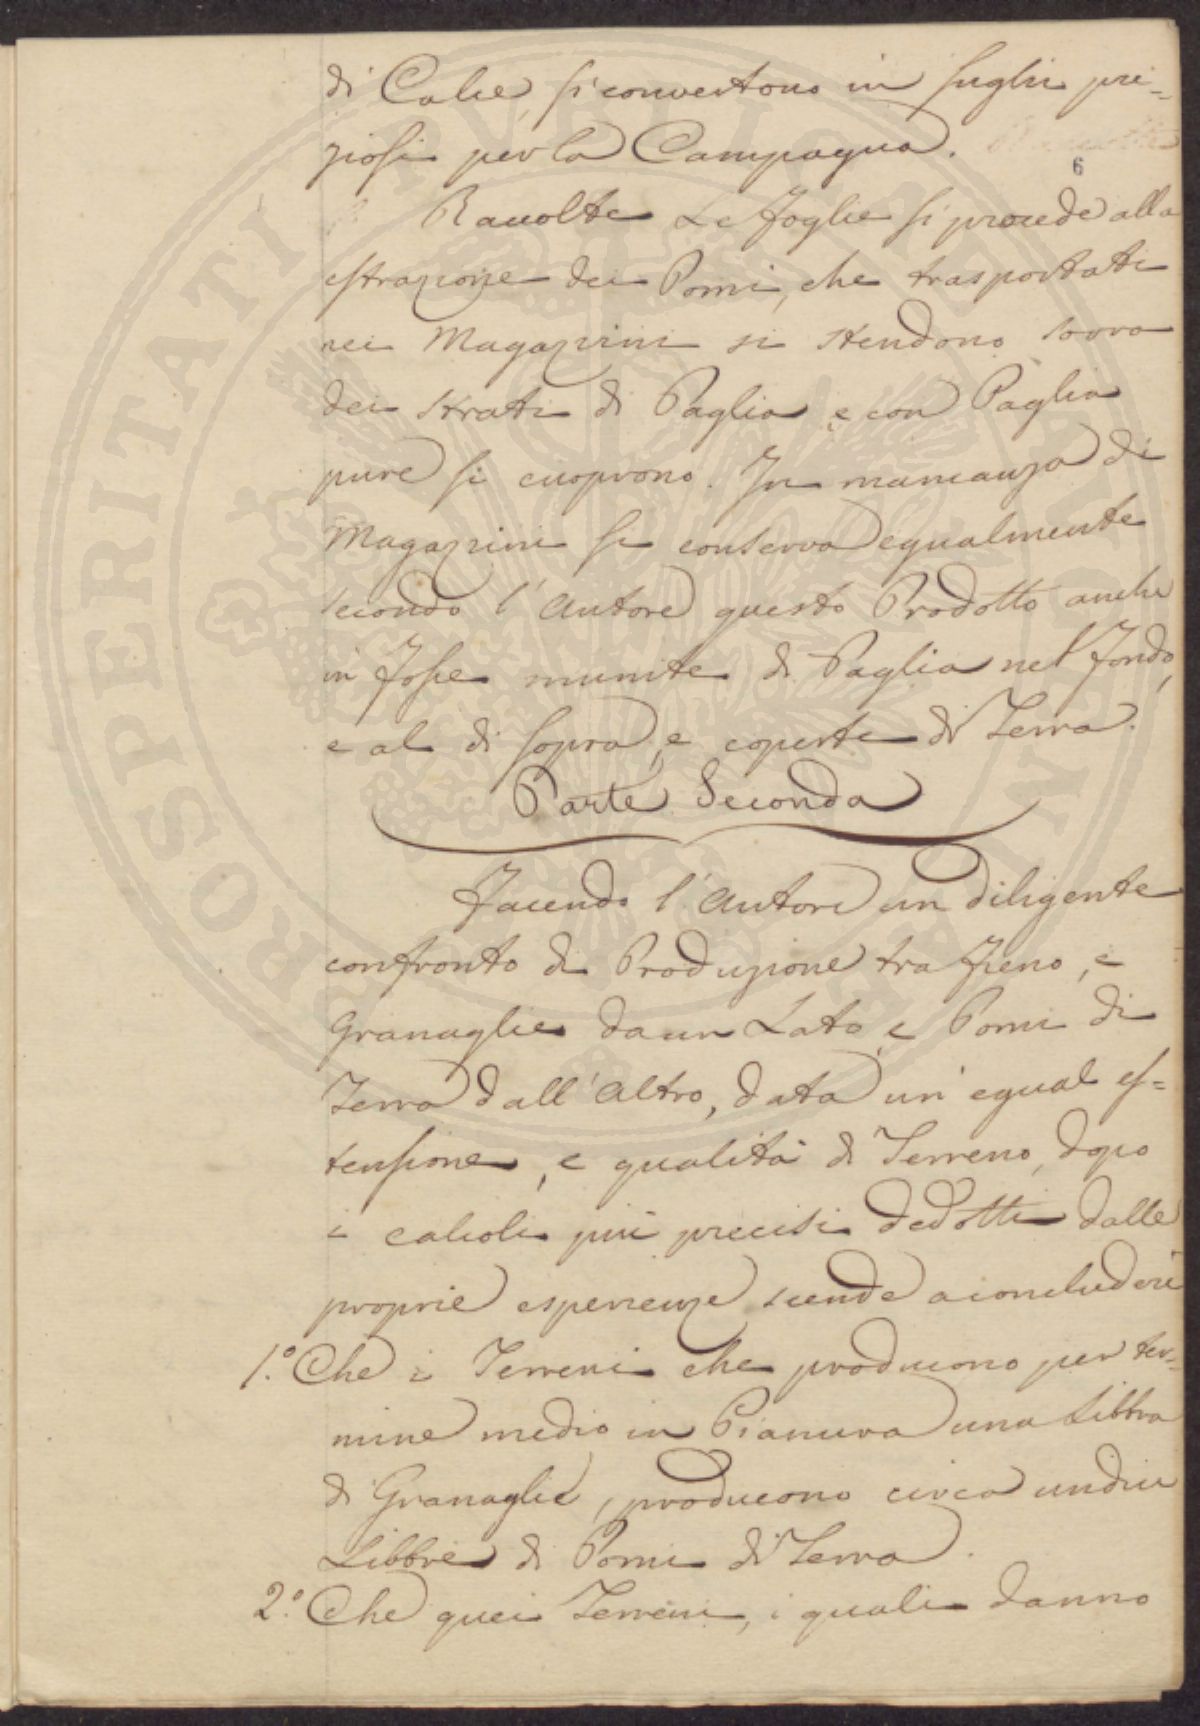 di Calce si convertono in sughi pre=
ziosi per la Campagna.
6
Racolte Le foglie si procede alla
estrazione dei Pomi, che trasportati
nei Magazzini si stendono sovra
dei strati di Paglia e con Paglia
pure si cuoprono. In mancanza di
Magazzini si conserva egualmente
secondo l'Autore questo Prodotto anche
in fosse munite di Paglia nel fondo,
e al di sopra, e coperte di Terra.
Parte Seconda
Facendo l'Autore un diligente
confronto di Produzione tra fieno, e
Granaglie da un Lato, e Pomi di
Terra dall'Altro, data un'egual es=
tensione, e qualità di Terreno, dopo
i calcoli più precisi dedotti dalle
proprie esperienze scende a concludere
1.º Che i Terreni che producono per ter=
mine medio in Pianura una Libbra
di Granaglie, producono circa undici
Libbre di Pomi di Terra.
2.º Che quei Terreni, i quali danno
PROSPERITATI PUBLICAE